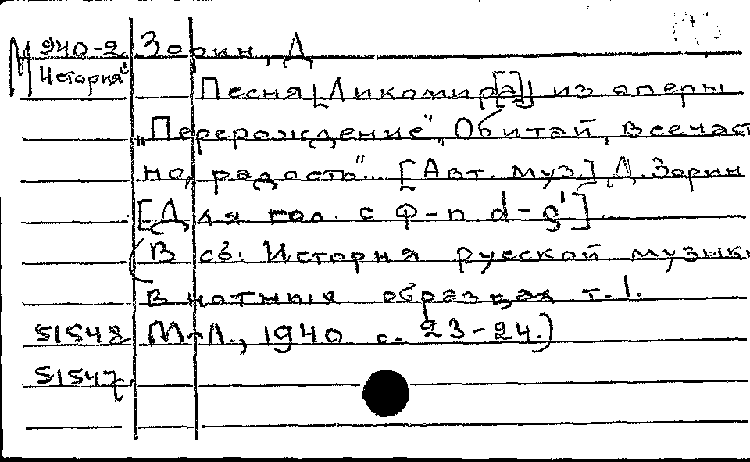 М 940-2 Зорин, Д
"История"
Песня [Ликомира] из оперы
„Перерождение". „Обитай, всечаст
но, радость"... [Авт. муз.] Д. Зорин
[Для гол. с ф-п. d¹-g¹]
(В сб: История русской музыки
в нотных образцах т. 1.
51548 М-Л., 1940 с. 23-24.)
51547